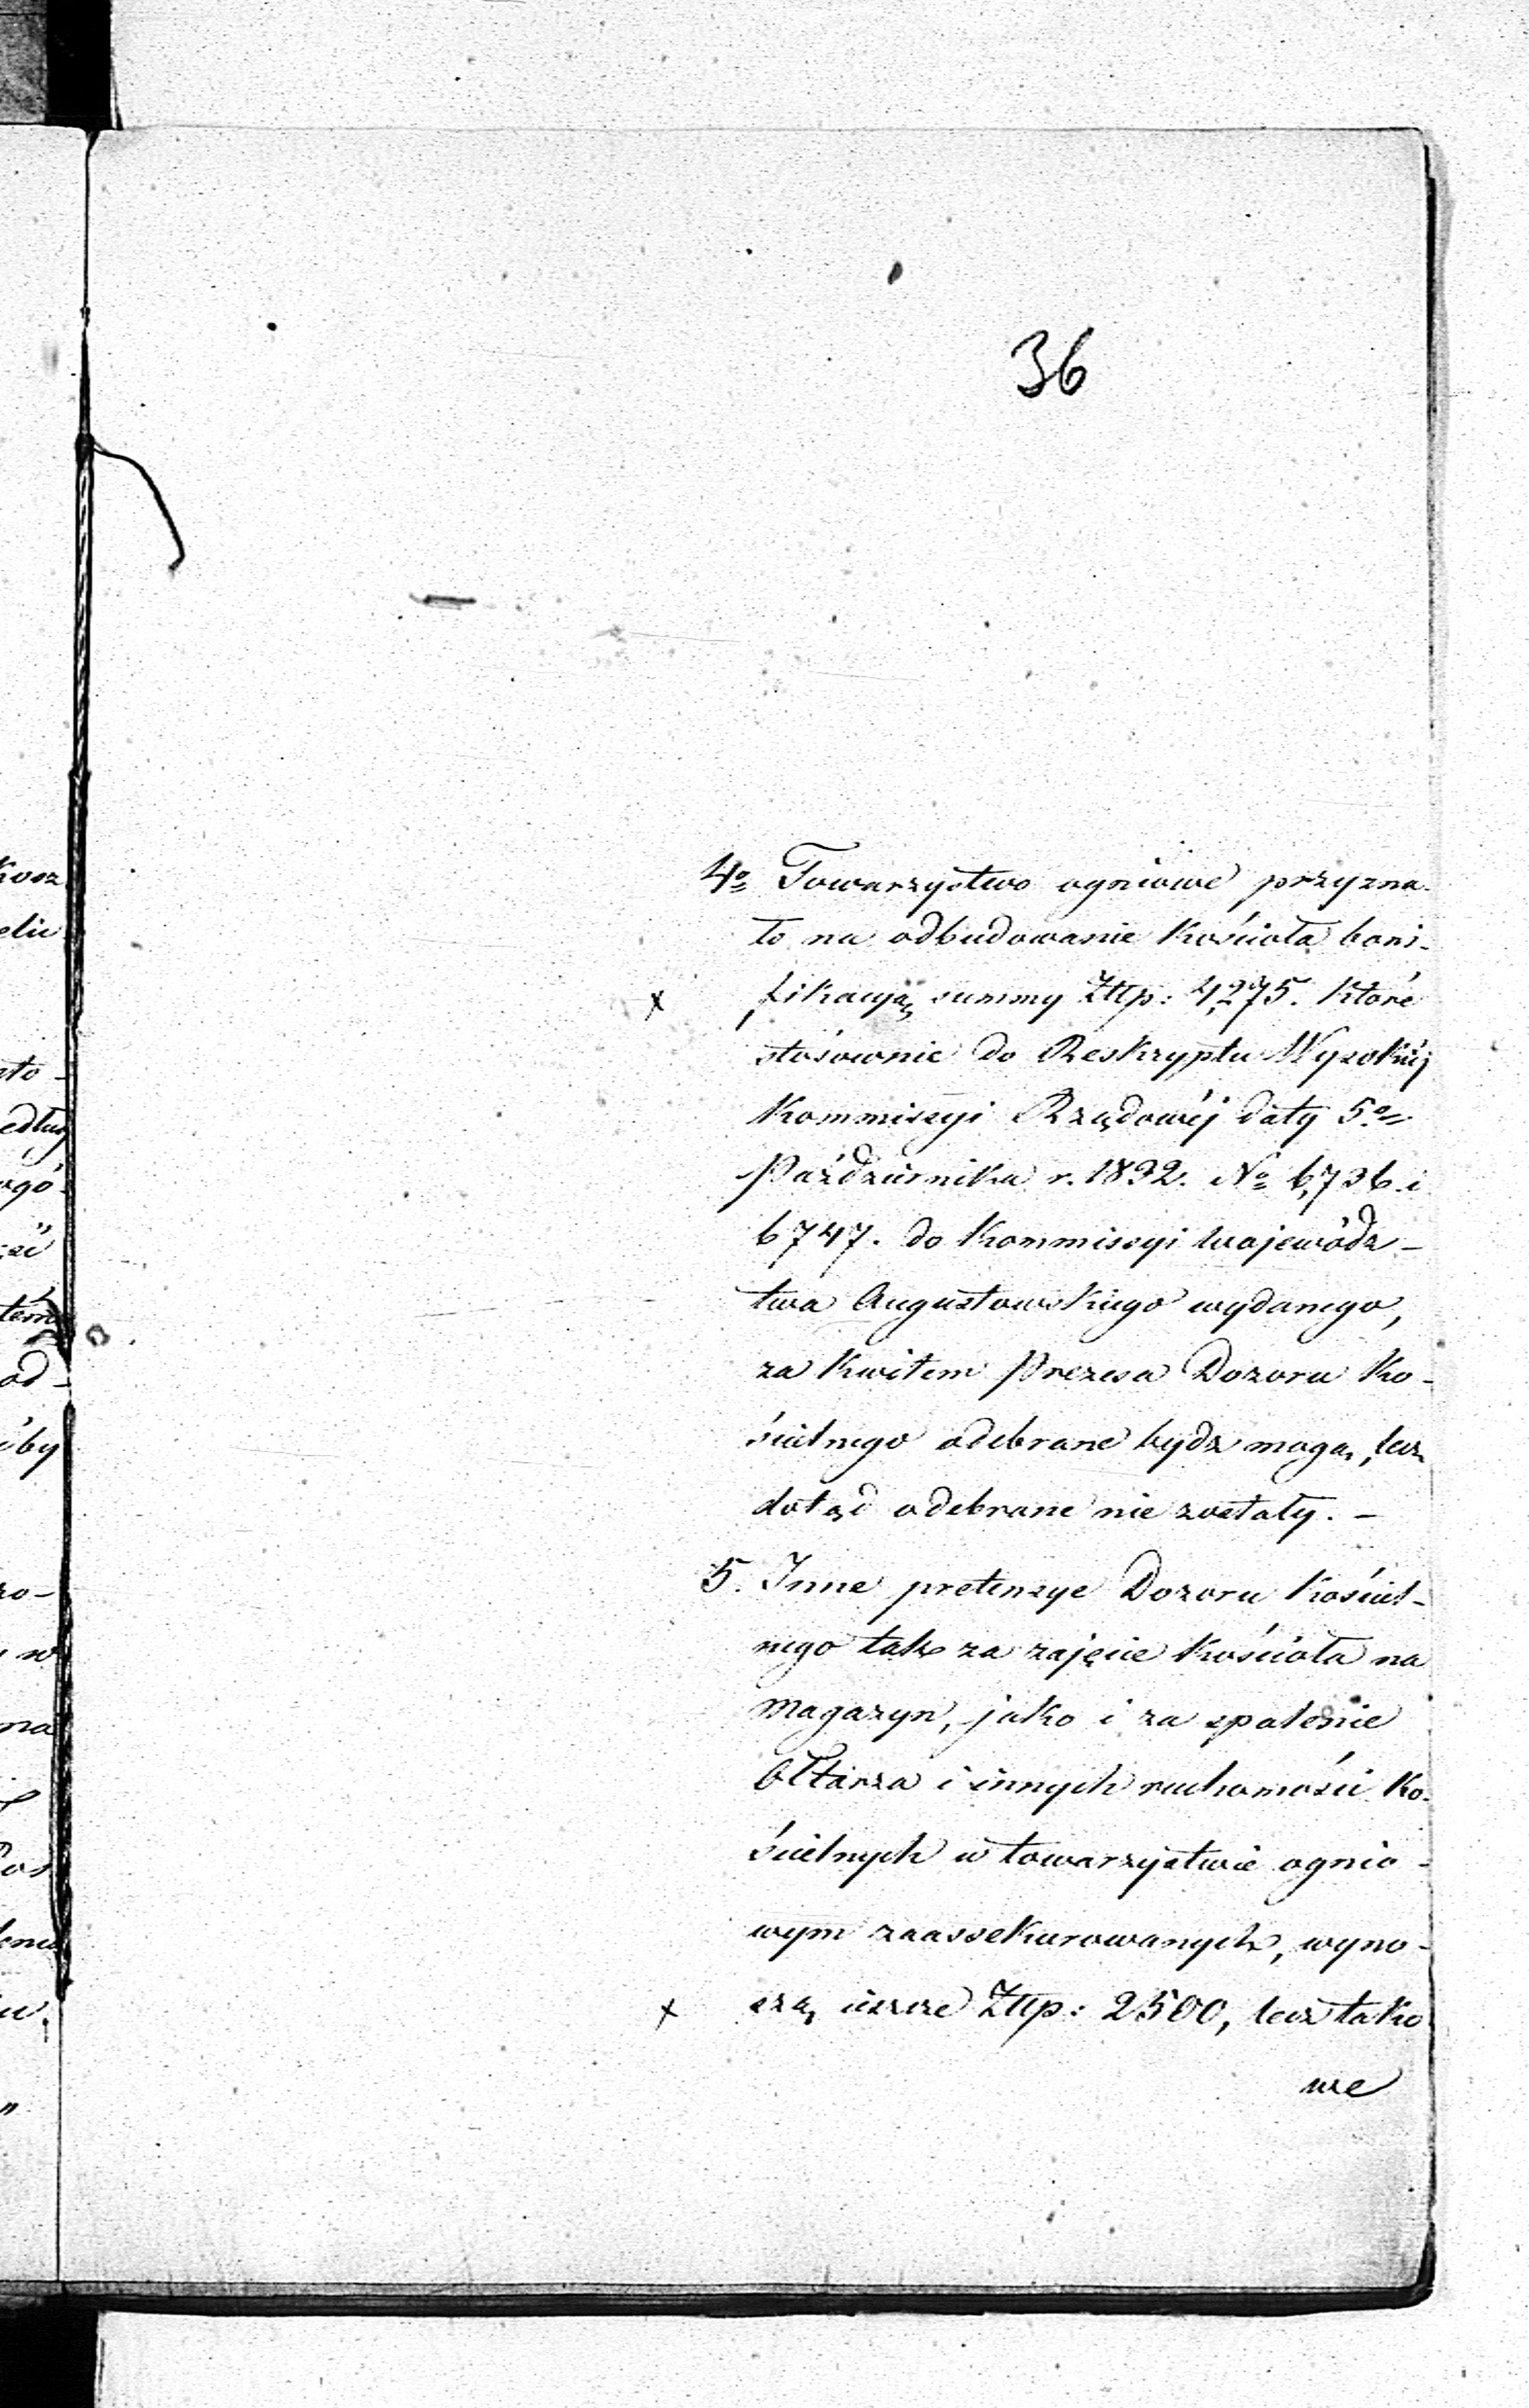 36
4o Towarzystwo ogniowe przyzna-
ło na odbudowanie Kościoła boni-
x fikacyą summy Złłp: 4,275. które
stósownie do Reskryptu Wysokiéj
Kommissyi Rządowéj daty 5o
Października r. 1832. No 6,736. i
6747. do Kommissyi Wojewódz-
twa Augustowskiego wydanego,
za Kwitem Prezesa Dozoru Ko-
ścielnego odebrane bydz mogą, lecz
dotąd odebrane nie zostały. -
5. Inne pretensye Dozoru Kościel-
nego tak za zajęcie Kościoła na
Magazyn, jako i za spalenie
Ołtarza i innych ruchomości Ko-
ścielnych w towarzystwie ognio-
wym zaassekurowanych, wyno-
x szą ieszcze Złłp: 2500, lecz tako
we